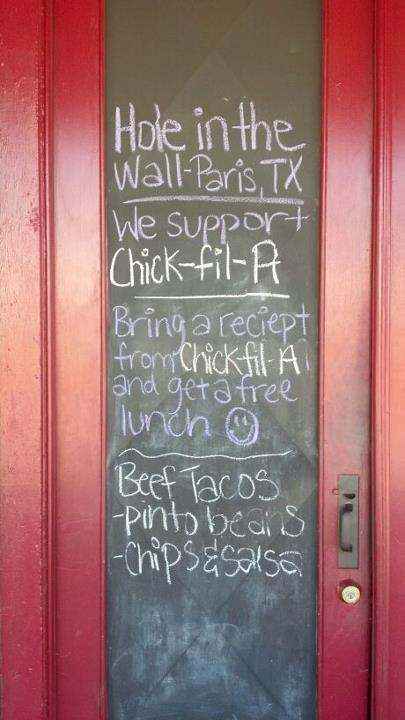 Hole in the
Wall-Paris, TX
We support
Chick-fil-A
Bring a reciept
from Chickfil-A
and get a free
lunch
Beef Tacos
-pinto beans
-Chips & Salsa